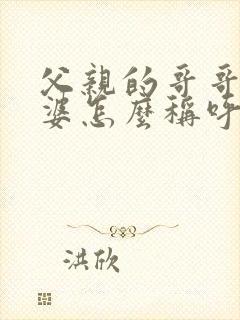 父親的哥哥
婆怎麼稱呼
洪欣